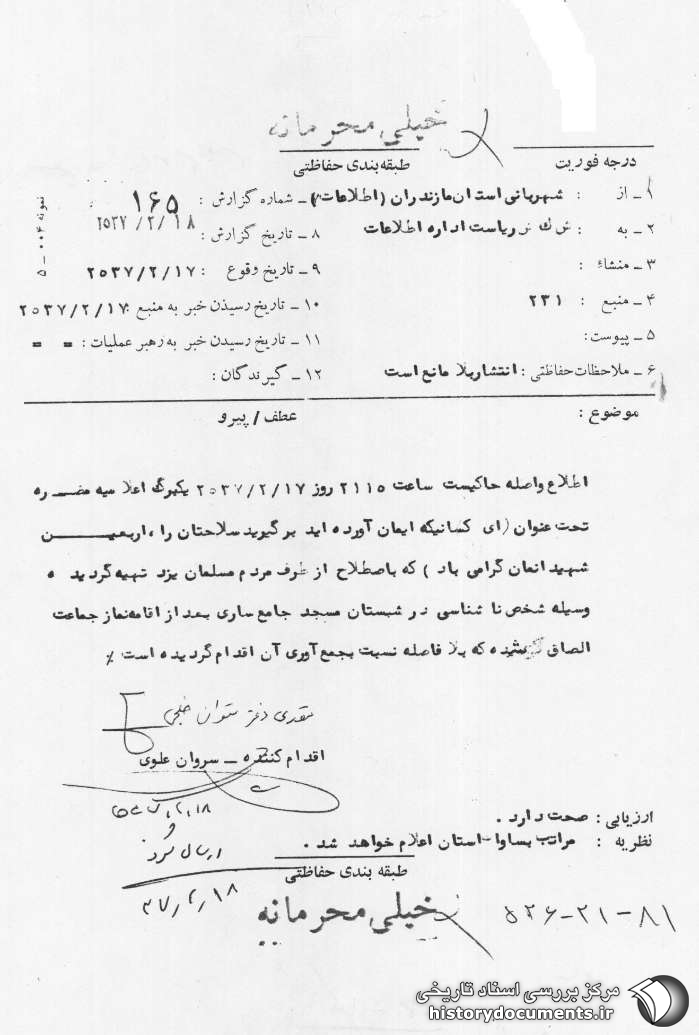 خیلی محرمانه
طبقه‌بندی حفاظتی
درجه فوریت
۱ـ از : شهربانی استان مازندران (اطلاعات)
۲ـ به : ریاست اداره اطلاعات
۳ـ منشاء :
۴ـ منبع : ۲۳۱
۵ـ پیوست:
۶ـ ملاحظات حفاظتی : انتشار بلا مانع است
ـ شماره گزارش : ۱۶۵
۸ـ تاریخ گزارش : ۲۵۳۷/۲/۱۸
۹ـ تاریخ وقوع : ۲۵۳۷/۲/۱۷
۱۰ـ تاریخ رسیدن خبر به منبع : ۲۵۳۷/۲/۱۷
۱۱ـ تاریخ رسیدن خبر به رهبر عملیات : = =
۱۲ـ گیرندگان :
نمونه ۰۰۴ـ۵
موضوع :
عطف / پیرو
اطلاع واصله حاکیست ساعت ۲۱۱۵ روز ۲۵۳۷/۲/۱۷ یکبرگ اعلامیه مضره
تحت عنوان (ای کسانیکه ایمان آورده اید برگیرید سلاحتان را ، اربعین
شهیدانمان گرامی باد ) که باصطلاح از طرف مردم مسلمان یزد تهیه گردیده
وسیله شخص نا شناسی در شبستان مسجد جامع ساری بعد از اقامه نماز جماعت
الصاق شده که بلا فاصله نسبت بجمع آوری آن اقدام گردیده است
اقدام کننده ـ سروان علوی
۱۸
ارسال گردد
۳۷/۲/۱۸
ارزیابی : صحت دارد .
نظریه : مراتب بساواک استان اعلام خواهد شد .
طبقه بندی حفاظتی
خیلی محرمانه
۵۲۶-۲۱-۸۱
مرکز بررسی اسناد تاریخی
historydocuments.ir